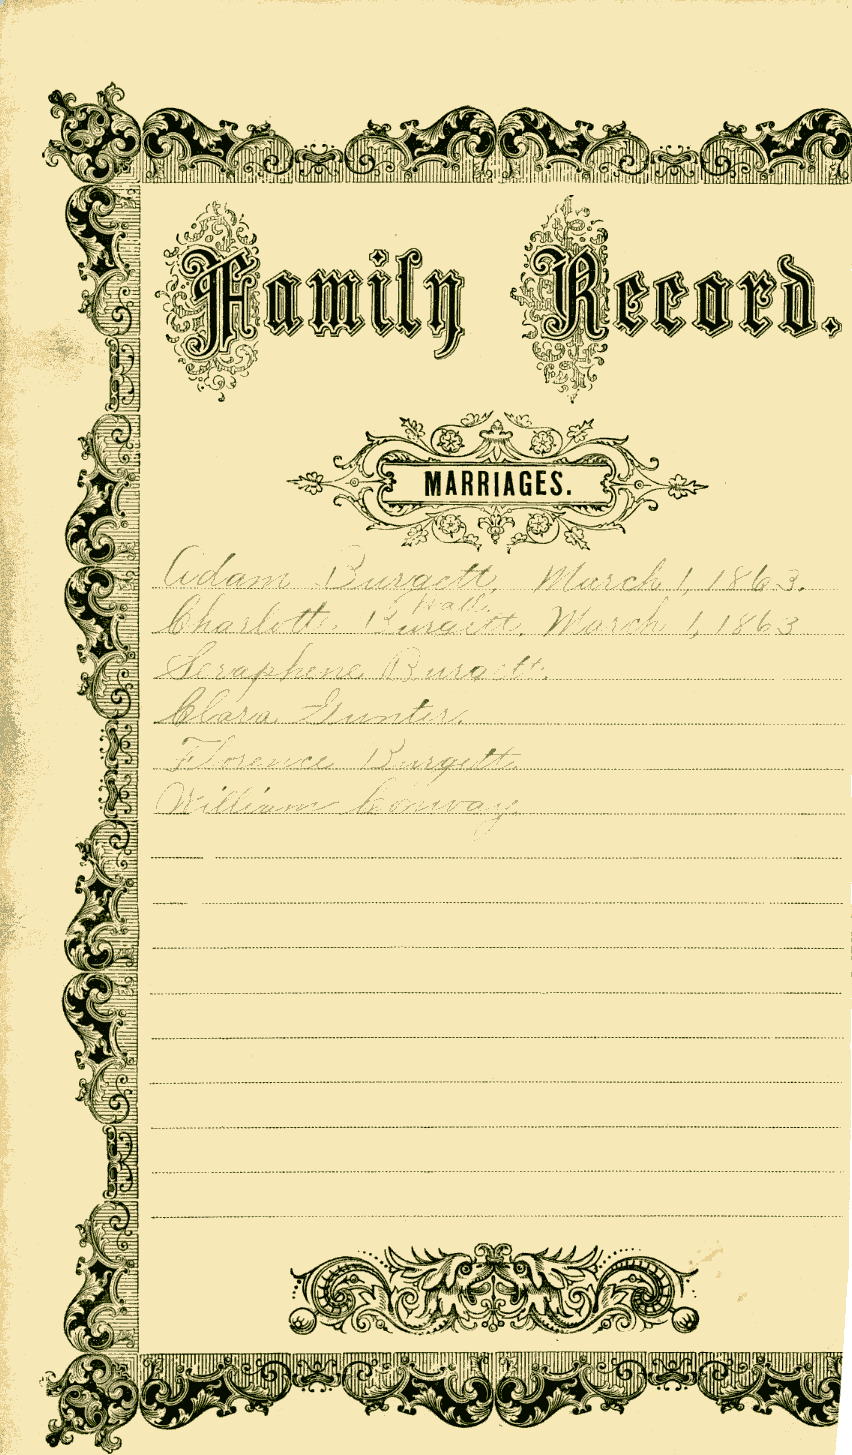 Family Record.
MARRIAGES.
Adam Burgett, March 1, 1863.
Hall
Charlotte Burgett, March 1, 1863
Seraphene Burgett.
Clara Gunter.
Florence Burgett
William Conway